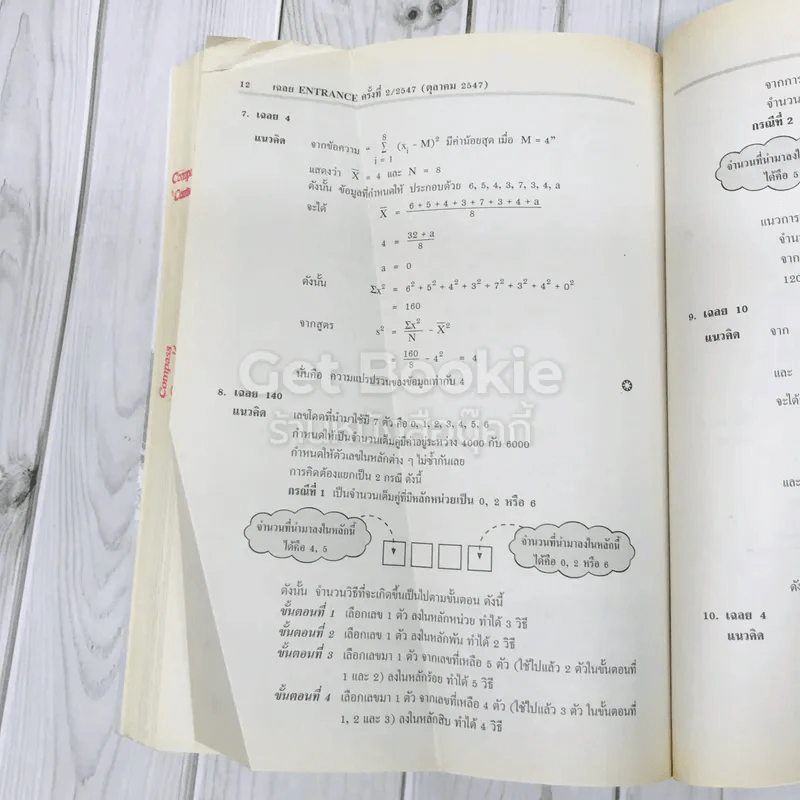 12 เฉลย ENTRANCE ครั้งที่ 2/2547 (ตุลาคม 2547)
7. เฉลย 4
แนวคิด จากข้อความ " 8 Σ i = 1 (xᵢ - M)² มีค่าน้อยสุด เมื่อ M = 4"
แสดงว่า X̅ = 4 และ N = 8
ดังนั้น ข้อมูลที่กำหนดให้ ประกอบด้วย 6, 5, 4, 3, 7, 3, 4, a
จะได้ X̅ = (6 + 5 + 4 + 3 + 7 + 3 + 4 + a)/8
4 = (32 + a)/8
a = 0
ดังนั้น Σx² = 6² + 5² + 4² + 3² + 7² + 3² + 4² + 0²
= 160
จากสูตร s² = Σx²/N - X̅²
= 160/8 - 4² = 4
นั่นคือ ความแปรปรวนของข้อมูลเท่ากับ 4
8. เฉลย 140
แนวคิด เลขโดดที่นำมาใช้มี 7 ตัว คือ 0, 1, 2, 3, 4, 5, 6
กำหนดให้เป็นจำนวนเต็มคู่มีค่าอยู่ระหว่าง 4000 กับ 6000
กำหนดให้ตัวเลขในหลักต่าง ๆ ไม่ซ้ำกันเลย
การคิดต้องแยกเป็น 2 กรณี ดังนี้
กรณีที่ 1 เป็นจำนวนเต็มคู่ที่มีหลักหน่วยเป็น 0, 2 หรือ 6
จำนวนที่นำมาลงในหลักนี้
ได้คือ 4, 5
จำนวนที่นำมาลงในหลักนี้
ได้คือ 0, 2 หรือ 6
ดังนั้น จำนวนวิธีที่จะเกิดขึ้นเป็นไปตามขั้นตอน ดังนี้
ขั้นตอนที่ 1 เลือกเลข 1 ตัว ลงในหลักหน่วย ทำได้ 3 วิธี
ขั้นตอนที่ 2 เลือกเลข 1 ตัว ลงในหลักพัน ทำได้ 2 วิธี
ขั้นตอนที่ 3 เลือกเลขมา 1 ตัว จากเลขที่เหลือ 5 ตัว (ใช้ไปแล้ว 2 ตัวในขั้นตอนที่
1 และ 2) ลงในหลักร้อย ทำได้ 5 วิธี
ขั้นตอนที่ 4 เลือกเลขมา 1 ตัว จากเลขที่เหลือ 4 ตัว (ใช้ไปแล้ว 3 ตัว ในขั้นตอนที่
1, 2 และ 3) ลงในหลักสิบ ทำได้ 4 วิธี
Get Bookie
ร้านหนังสือบุ๊คกี้
จากการ
จำนวน
กรณีที่ 2
จำนวนที่นำมาลงใน
ได้คือ 5
แนวการ
จาก
120
9. เฉลย 10
แนวคิด จาก
และ
จะได้
และ
10. เฉลย 4
แนวคิด
Compass